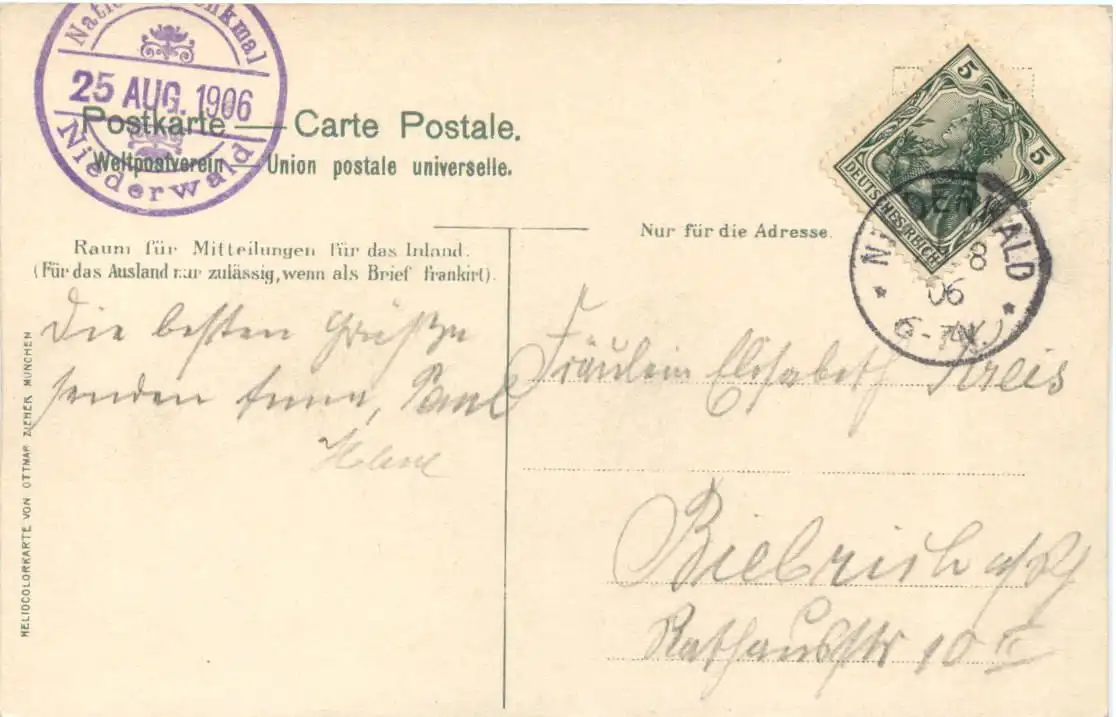 National-Denkmal
25 AUG. 1906
Niederwald
Postkarte — Carte Postale.
Weltpostverein — Union postale universelle.
Raum für Mitteilungen für das Inland.
(Für das Ausland nur zulässig, wenn als Brief frankirt).
Nur für die Adresse.
5
5
DEUTSCHES REICH
NIEDERWALD
8
06
6-7N.
Die besten Grüße
senden Anna, Paul
Fräulein Elisabeth Kreis
Biebrich a/Rh
Rathausstr 10 II
HELIOCOLORKARTE VON OTTMAR ZIEHER, MÜNCHEN